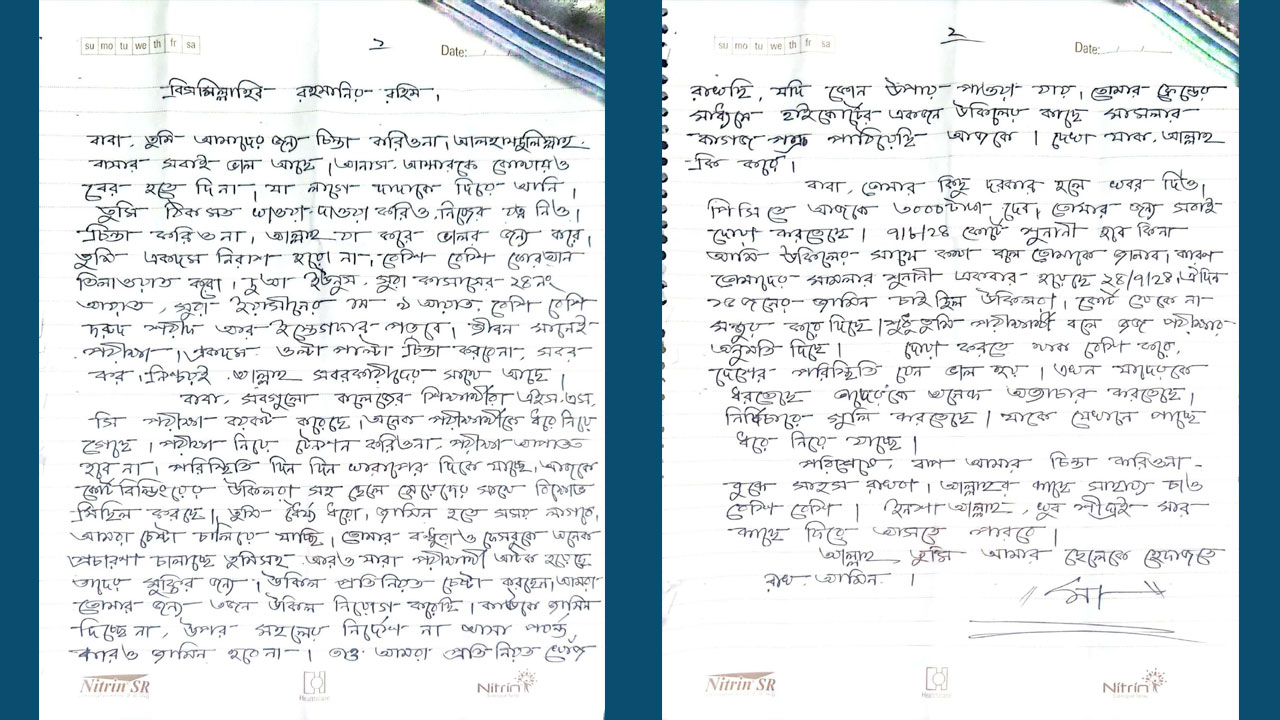 su mo tu we th fr sa
২
Date: / /
বিসমিল্লাহির রহমানির রহিম।
বাবা, তুমি আমাদের জন্য চিন্তা করিওনা। আলহামদুলিল্লাহ,
বাসার সবাই ভাল আছে। আনাস, আমারকে কোথায়ও
বের হতে দিনা। যা লাগে দাদাকে দিয়ে আনি।
তুমি ঠিকমত খাওয়া-দাওয়া করিও, নিজের যত্ন নিও।
চিন্তা করিওনা, আল্লাহ যা করে ভালর জন্য করে।
তুমি একদম নিরাশ হবে না। বেশি বেশি কোরআন
তিলাওয়াত কর। দু'আ ইউনুস, সুরা কাসাসের ২৪নং
আয়াত, সুরা ইয়াসীনের ১ম ৯ আয়াত, বেশি বেশি
দরুদ শরীফ আর ইস্তেগফার পড়বে। জীবন মানেই
পরীক্ষা। একদম উল্টা পাল্টা চিন্তা করবেনা, সবর
কর। নিশ্চয়ই আল্লাহ সবরকারীদের সাথে আছে।
বাবা, সবগুলো কলেজের শিক্ষার্থীরা এইচ,এস,
সি পরীক্ষা বয়কট করেছে। অনেক পরীক্ষার্থীকে ধরে নিয়ে
গেছে। পরীক্ষা নিয়ে টেনশন করিওনা, পরীক্ষা আপাতত
হবে না। পরিস্থিতি দিন দিন খারাপের দিকে যাচ্ছে, আজকে
কোর্ট বিল্ডিংয়ের উকিলরা সহ ছেলে মেয়েদের সাথে বিক্ষোভ
মিছিল করছে। তুমি ধৈর্য্য ধরো, জামিন হতে সময় লাগবে,
আমরা চেষ্টা চালিয়ে যাচ্ছি। তোমার বন্ধুরাও ফেসবুকে অনেক
প্রচারণা চালাচ্ছে তুমিসহ আরও যারা পরীক্ষার্থী আটক হয়েছে
তাদের মুক্তির জন্য। উকিল প্রতিনিয়ত চেষ্টা করছেন। আমরা
তোমার জন্য ৩জন উকিল নিয়োগ করেছি। কাউকে জামিন
দিচ্ছে না, উপর মহলের নির্দেশ না আসা পর্যন্ত
কারও জামিন হবেনা। তাও আমরা প্রতিনিয়ত খোঁজ
Nitrin SR
Healthcare
Nitrin
su mo tu we th fr sa
২
Date: / /
রাখছি, যদি কোন উপায় পাওয়া যায়। তোমার ফ্রেন্ডের
মাধ্যমে হাইকোর্টের একজন উকিলের কাছে মামলার
কাগজ পত্র পাঠিয়েছি আজকে। দেখা যাক, আল্লাহ
কি করে।
বাবা, তোমার কিছু দরকার হলে খবর দিও।
পিসিতে আজকে ৩০০০টাকা দেব। তোমার জন্য সবাই
দোয়া করতেছে। ৭/৮/২৪ কোর্টে শুনানী হবে কিনা
আমি উকিলের সাথে কথা বলে তোমাকে জানাব। কারণ
তোমাদের মামলার শুনানী একবার হয়েছে ২৪/৭/২৪। ঐদিন
২৫ জনের জামিন চাইছিল উকিলরা, কোর্ট থেকে না
মঞ্জুর করে দিছে। শুধু তুমি পরীক্ষার্থী বলে জজ পরীক্ষার
অনুমতি দিছে। দোয়া করতে থাক বেশি করে,
দেশের পরিস্থিতি যেন ভাল হয়। এখন যাদেরকে
ধরতেছে তাদেরকে অনেক অত্যাচার করতেছে।
নির্বিচারে গুলি করতেছে। যাকে যেখানে পাচ্ছে
ধরে নিয়ে যাচ্ছে।
পরিশেষে, বাপ আমার চিন্তা করিওনা
বুকে সাহস রাখবা। আল্লাহর কাছে সাহায্য চাও
বেশি বেশি। ইনশা আল্লাহ, খুব শীঘ্রই মার
কাছে ফিরে আসতে পারবে।
আল্লাহ তুমি আমার ছেলেকে হেফাজতে
রাখ আমিন।
মা
Nitrin SR
Healthcare
Nitrin